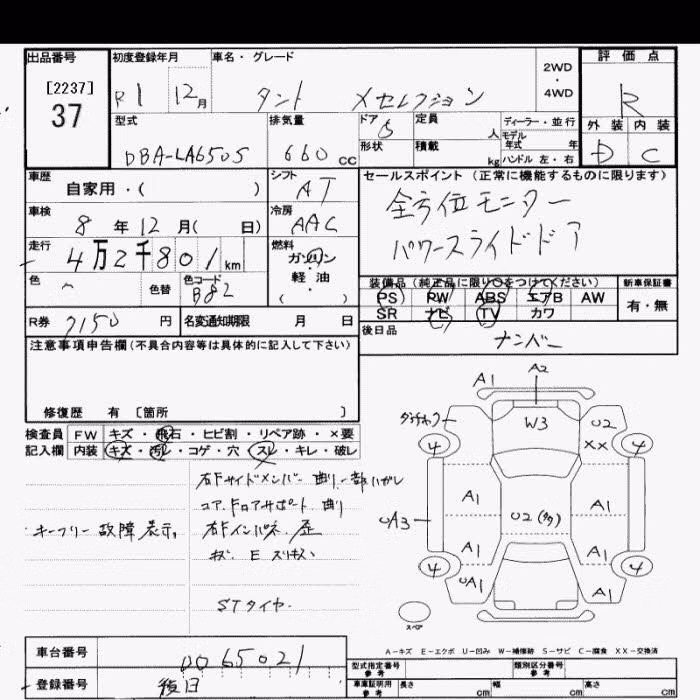 出品番号 初度登録年月 車名・グレード 2WD ・ 4WD 評価点
[2237] 37 R1 12月 タント Xセレクション R
型式 排気量 ドア 5 定員 人 ディーラー・並行 外装 内装
モデル年式 年
DBA-LA650S 660 CC 形状 積載 kg ハンドル 左・右 D C
車歴 自家用・( ) シフト AT セールスポイント (正常に機能するものに限ります)
車検 8年12月( 日) 冷房 AAC 全方位モニター
走行 4万2千801km 燃料 ガソリン・軽油 ( ) パワースライドドア
色 色替 色コード B82 装備品 (純正品に限り○をつけてください) 新車保証書
PS PW ABS エアB AW 有・無
SR ナビ TV カワ
R券 7150円 名変通知期限 月 日 後日品 ナンバー
注意事項申告欄(不具合内容等は具体的に記入して下さい)
修復歴 有 [箇所 ]
検査員 FW キズ・飛石・ヒビ割・リペア跡・×要
記入欄 内装 キズ・汚レ・コゲ・穴・スレ・キレ・破レ
右Fサイドメンバー 曲り 一部ハガレ
コアF.ロアサポート 曲り
キーフリー故障表示。 右Fインパネ.歪
STタイヤ.
A1 A2
W3 U2
XX
4 4
A1 A1
UA3 U2(多)
A1 A1
4 4
UA1 A1
スペア
A-キズ E-エクボ U-凹み W-補修跡 S-サビ C-腐食 XX-交換済
車台番号 0065021 型式指定番号 参考 類別区分番号 参考
登録番号 後日 車庫証明用 参考 長さ cm 幅 cm 高さ cm